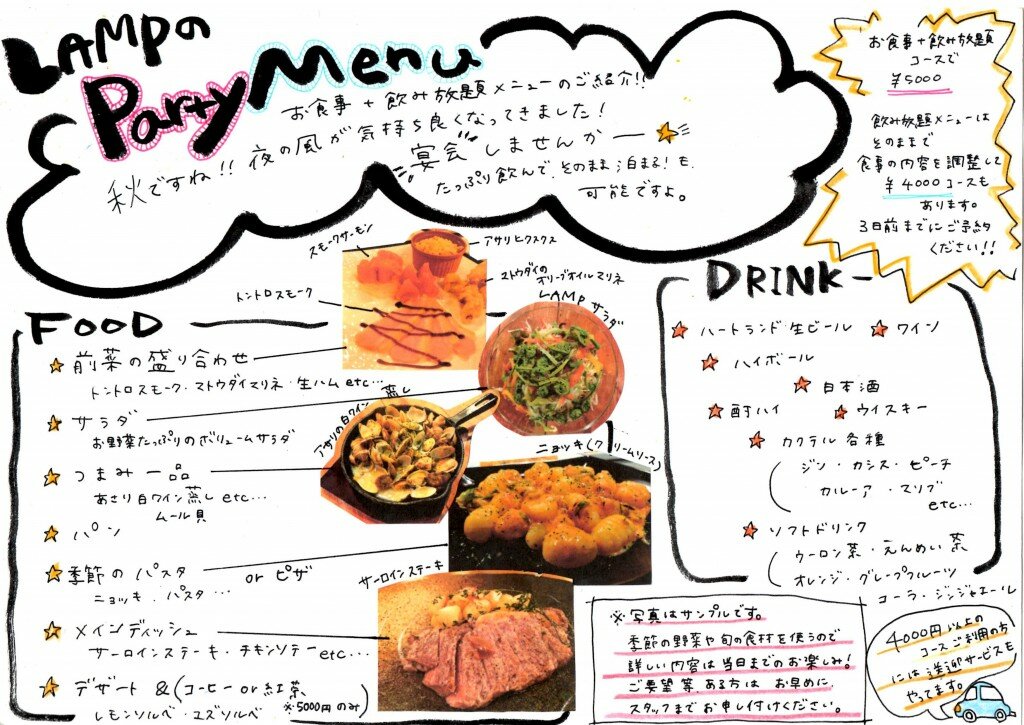 LAMPの
Party Menu
お食事 + 飲み放題メニューのご紹介!!
秋ですね!! 夜の風が気持ち良くなってきました!
宴会しませんかー
たっぷり飲んで、そのまま泊まる!も、
可能ですよ。
お食事+飲み放題
コースで
¥5000
飲み放題メニューは
そのままで
食事の内容を調整して
¥4000コースも
あります。
3日前までにご予約
ください!!
スモークサーモン
アサリとクスクス
マトウダイの
オリーブオイルマリネ
トントロスモーク
LAMPサラダ
アサリの白ワイン蒸し
ニョッキ(クリームソース)
サーロインステーキ
FOOD
前菜の盛り合わせ
トントロスモーク・マトウダイマリネ・生ハム etc...
サラダ
お野菜たっぷりのボリュームサラダ
つまみ一品
あさり白ワイン蒸し etc...
ムール貝
パン
季節のパスタ or ピザ
ニョッキ、パスタ...
メインディッシュ
サーロインステーキ・チキンソテー etc...
デザート & (コーヒー or 紅茶
※5000円のみ)
レモンソルベ・ユズソルベ
DRINK
ハートランド生ビール
ワイン
ハイボール
日本酒
酎ハイ
ウイスキー
カクテル各種
ジン・カシス・ピーチ
カルーア・マリブ
etc...
ソフトドリンク
ウーロン茶・えんめい茶
オレンジ・グレープフルーツ
コーラ・ジンジャエール
※写真はサンプルです。
季節の野菜や旬の食材を使うので
詳しい内容は当日までのお楽しみ!
ご要望等ある方は お早めに、
スタッフまでお申し付けください。
4000円以上の
コースご利用の方
には送迎サービスも
やってます。